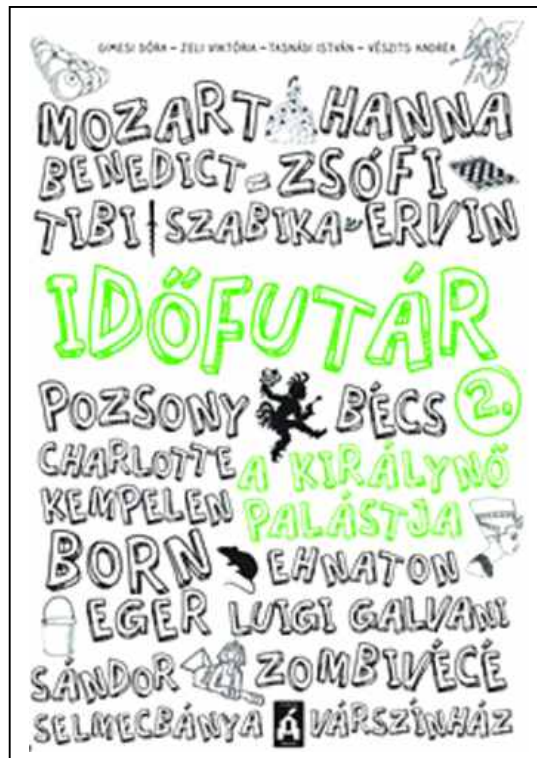 GIMESI DÓRA – JELI VIKTÓRIA – TASNÁDI ISTVÁN – VÉSZITS ANDREA
MOZART HANNA
BENEDICT ZSÓFI
TIBI SZABIKA ERVIN
IDŐFUTÁR
POZSONY BÉCS 2.
CHARLOTTE A KIRÁLYNŐ
KEMPELEN PALÁSTJA
BORN EHNATON
EGER LUIGI GALVANI
SÁNDOR ZOMBIVÉCÉ
SELMECBÁNYA Á VÁRSZÍNHÁZ